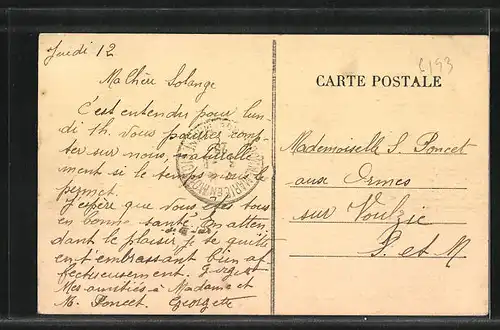 Jeudi 12
Ma Chère Solange
C'est entendu pour lun-
di 1h. Vous pouvez comp-
ter sur nous, naturelle-
ment si le temps nous le
permet.
J'espère que vous êtes tous
en bonne santé. En atten-
dant le plaisir, je te quitte
en t'embrassant bien af-
fectueusement.
Mes amitiés à Madame et
M. Poncet. Georgette
6193
CARTE POSTALE
Mademoiselle S. Poncet
aux Ormes
sur Voulzie
S. et M